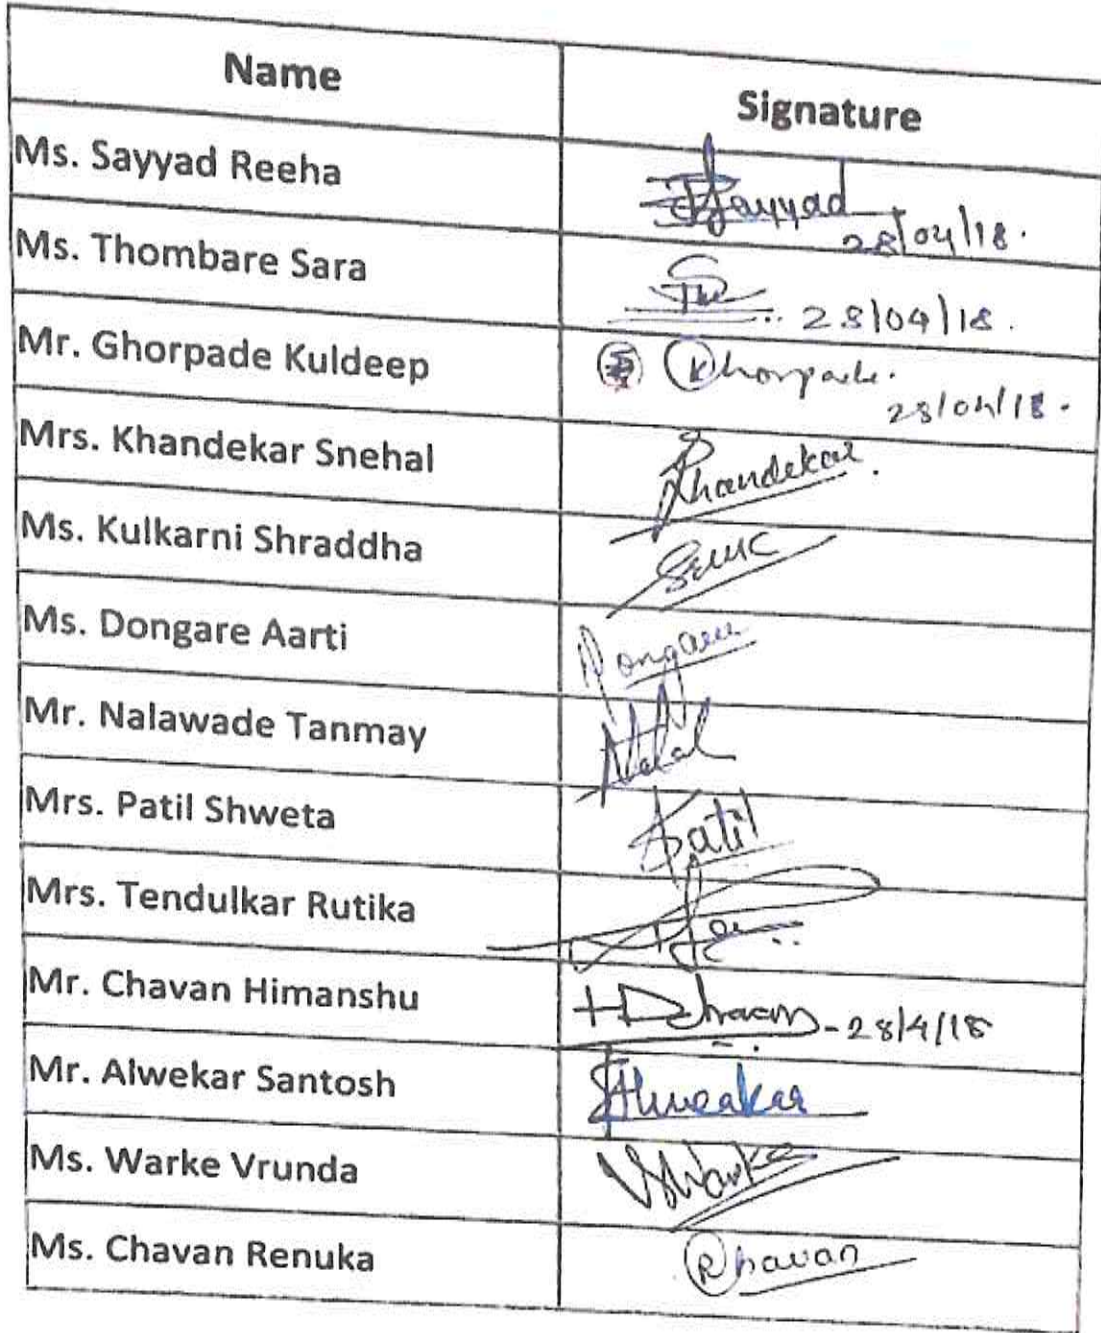 Name Signature
Ms. Sayyad Reeha Sayyad
28/04/18.
Ms. Thombare Sara 28/04/18.
Mr. Ghorpade Kuldeep Khorpade.
28/04/18.
Mrs. Khandekar Snehal Khandekar.
Ms. Kulkarni Shraddha
Ms. Dongare Aarti Dongare
Mr. Nalawade Tanmay
Mrs. Patil Shweta Patil
Mrs. Tendulkar Rutika
Mr. Chavan Himanshu - 28/4/18
Mr. Alwekar Santosh
Ms. Warke Vrunda VWarke
Ms. Chavan Renuka Rhavan